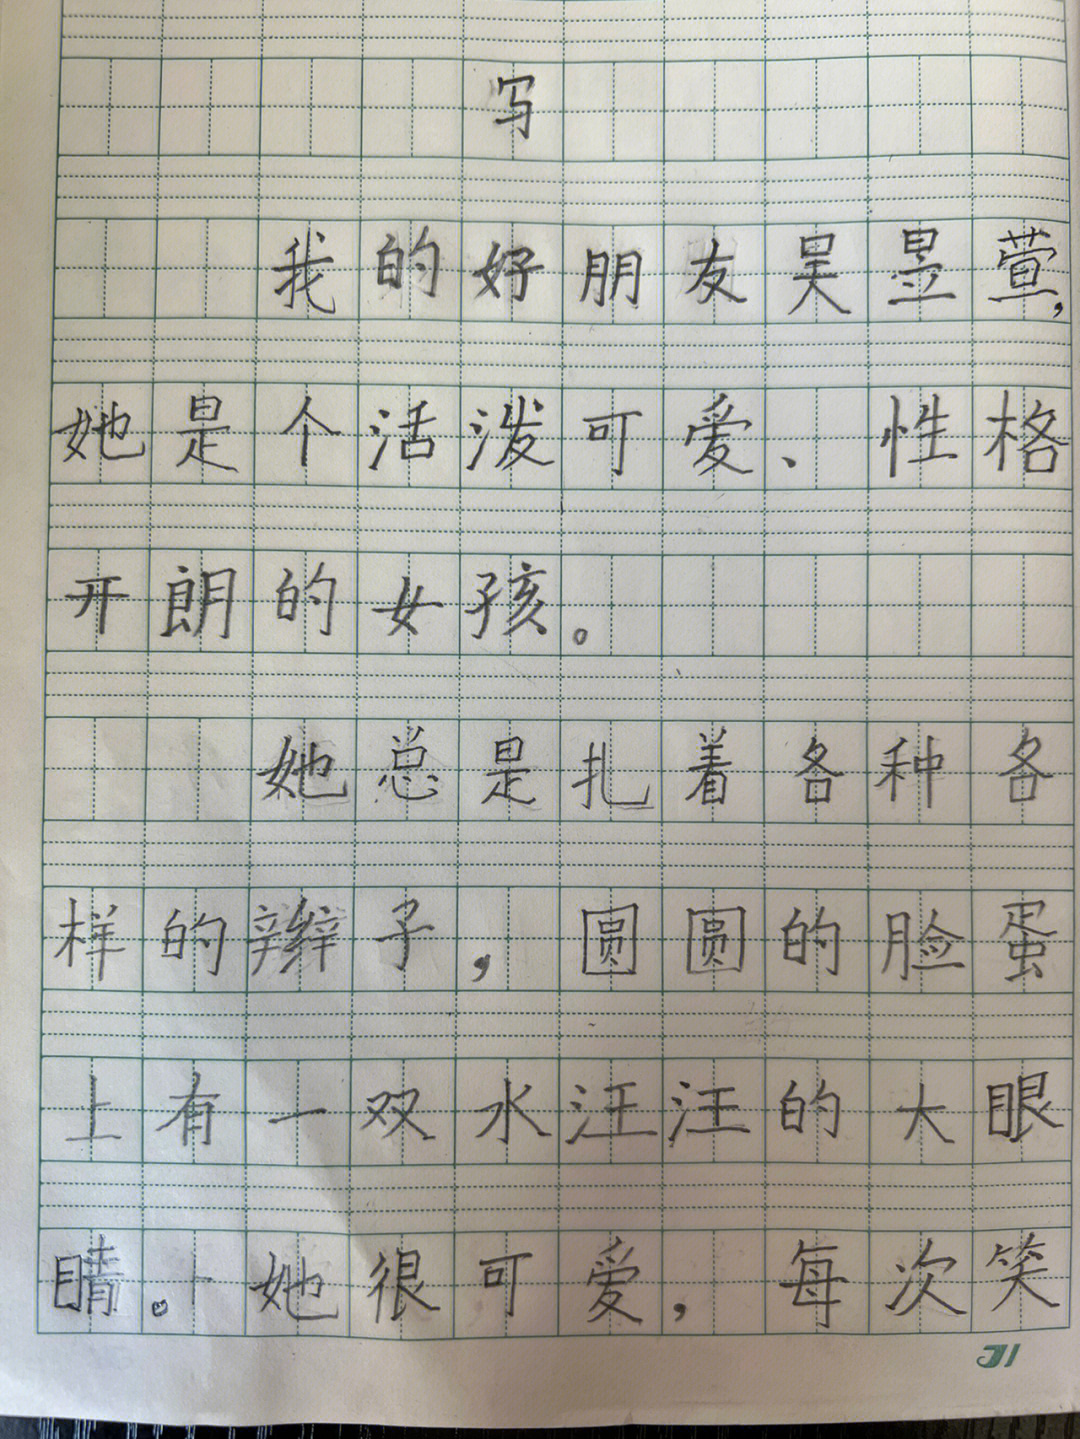 写
我的好朋友吴昱萱,
她是个活泼可爱、性格
开朗的女孩。
她总是扎着各种各
样的辫子，圆圆的脸蛋
上有一双水汪汪的大眼
睛。她很可爱，每次笑
31